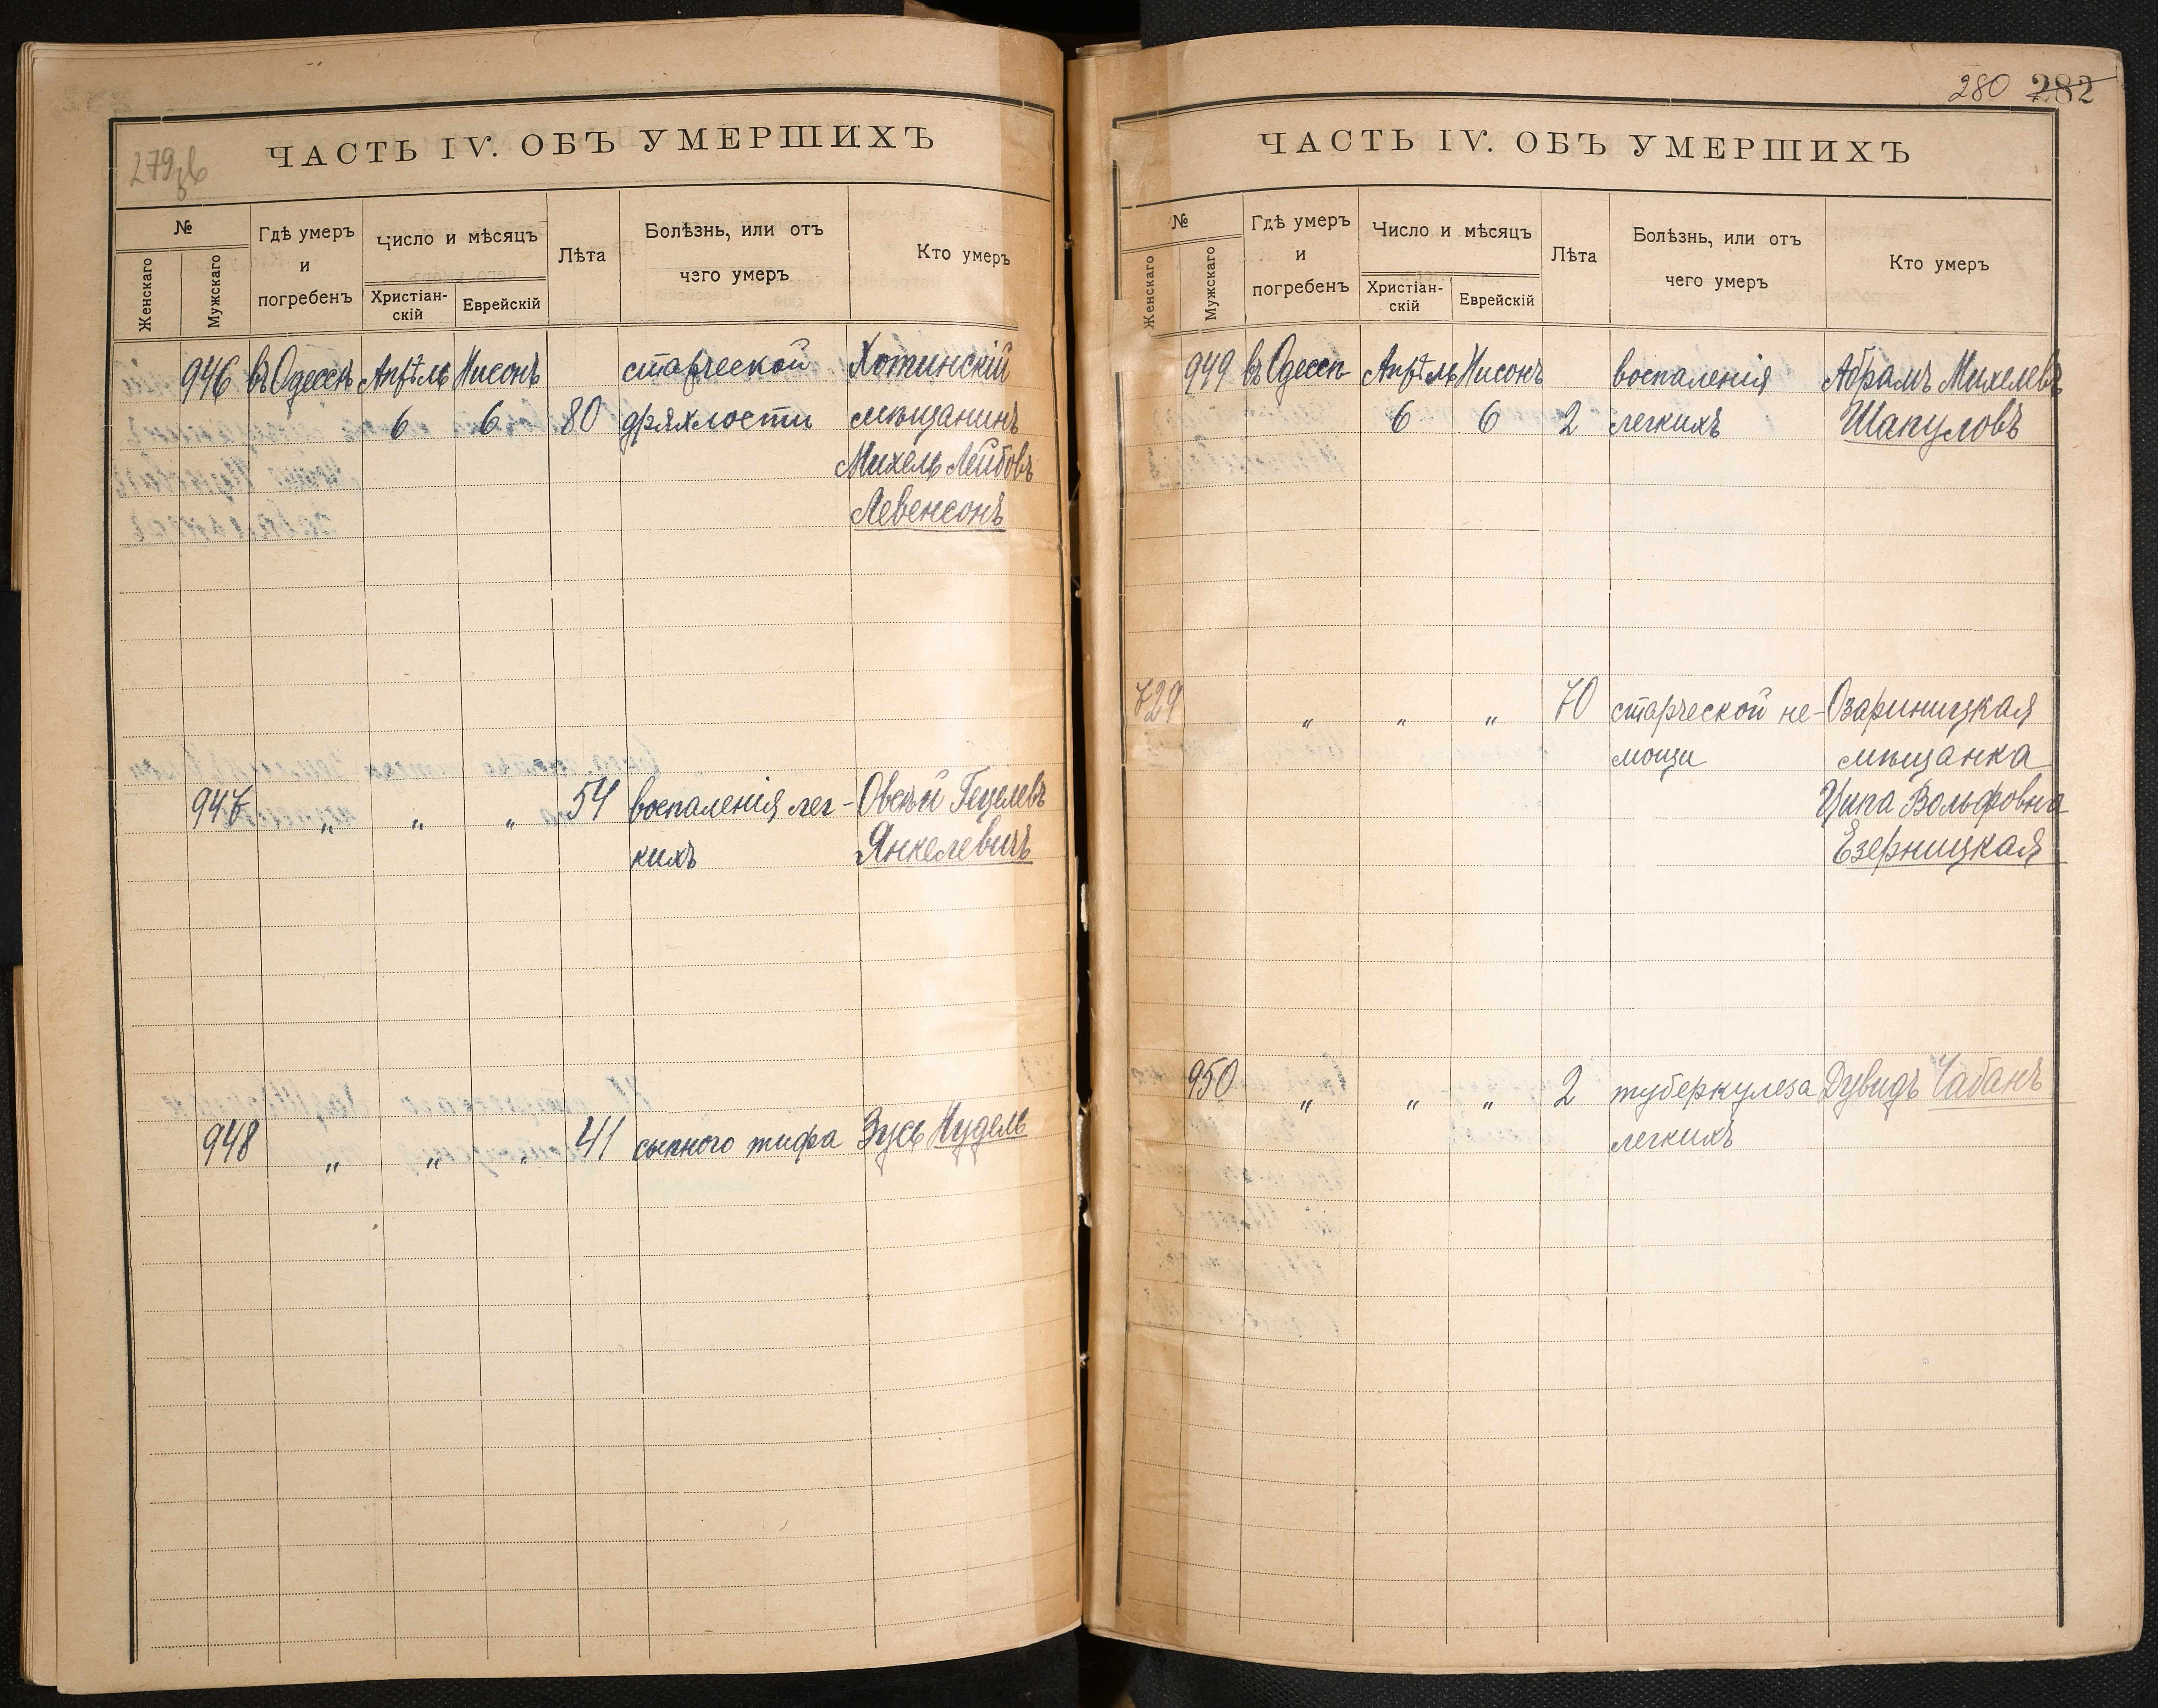 279 об
ЧАСТЬ IV. ОБЪ УМЕРШИХЪ
№
Женскаго
Мужскаго
Гдѣ умеръ
и
погребенъ
Число и мѣсяцъ
Христіан-
скій
Еврейскій
Лѣта
Болѣзнь, или отъ
чего умеръ
Кто умеръ
946 въ Одессѣ Апрѣль Нисонъ старческой Хотинскій
6 6 80 дряхлости мѣщанинъ
Михель Лейбовъ
Левенсонъ
947 " " " 54 воспаленія лег- Овсѣй Гецелевъ
кихъ Янкелевичъ
948 " " " 41 сыпного тифа Зусь Нудель
280 282
ЧАСТЬ IV. ОБЪ УМЕРШИХЪ
№
Женскаго
Мужскаго
Гдѣ умеръ
и
погребенъ
Число и мѣсяцъ
Христіан-
скій
Еврейскій
Лѣта
Болѣзнь, или отъ
чего умеръ
Кто умеръ
949 въ Одессѣ Апрѣль Нисонъ воспаленія Абрамъ Михелевъ
6 6 2 легкихъ Шапуловъ
729 " " " 70 старческой не- Озариницкая
мощи мѣщанка
Ципа Вольфовна
Езерницкая
950 " " " 2 туберкулеза Дувидъ Чабанъ
легкихъ